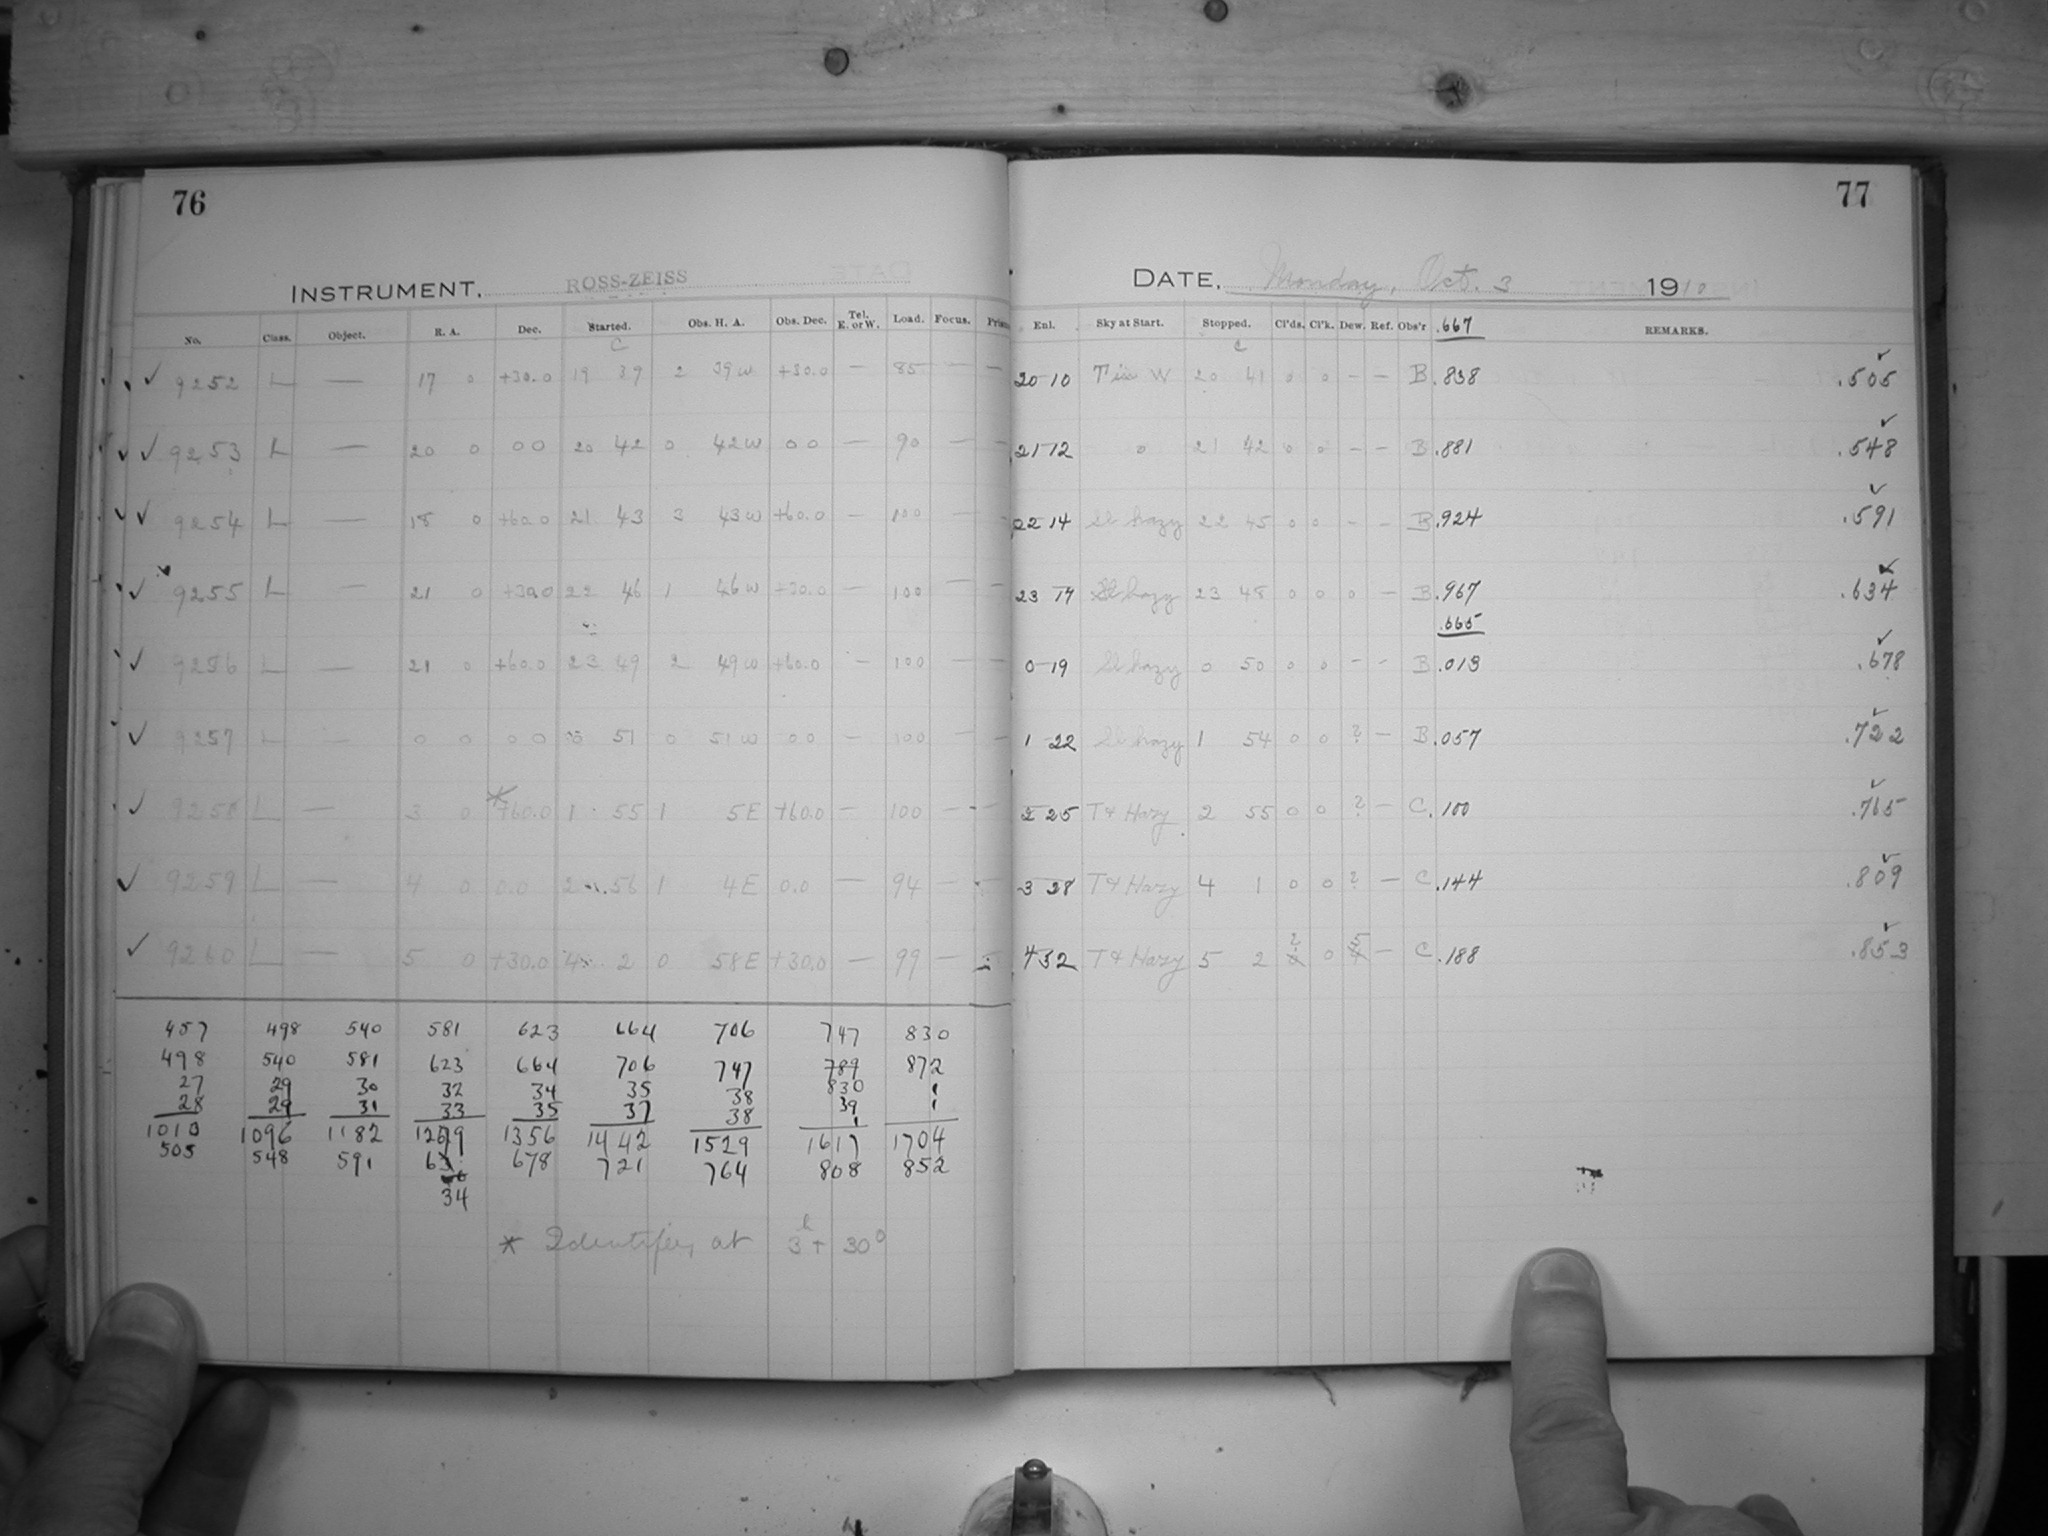 76
INSTRUMENT, ROSS-ZEISS
No. Class. Object. R. A. Dec. Started. Obs. H. A. Obs. Dec. Tel. E. or W. Load. Focus.
C
✓ 9252 L — 17 0 +30.0 19 39 2 39 W +30.0 — 85 — —
✓ 9253 L — 20 0 0 0 20 42 0 42 W 0 0 — 90 — —
✓ 9254 L — 18 0 +60.0 21 43 3 43 W +60.0 — 100 — —
✓ 9255 L — 21 0 +30.0 22 46 1 46 W +30.0 — 100 — —
✓ 9256 L — 21 0 +60.0 23 49 2 49 W +60.0 — 100 — —
✓ 9257 L — 0 0 0 0 51 0 51 W 0.0 — 100 — —
✓ 9258 L — 3 0 * +60.0 1 55 1 5 E +60.0 — 100 — —
✓ 9259 L — 4 0 0.0 2 56 1 4 E 0.0 — 94 —
✓ 9260 L — 5 0 +30.0 4 2 0 58 E +30.0 — 99 —
457 498 540 581 623 664 706 747 830
498 540 581 623 664 706 747 789 872
27 29 30 32 34 35 38 830 1
28 29 31 33 35 37 38 39 1
1010 1096 1182 1356 1442 1529 1617 1704
505 548 591 678 721 764 808 852
34
* Identifies at 3h + 30°
77
DATE, Monday, Oct. 3 1910
Enl. Sky at Start. Stopped. Cl'ds. Cl'k. Dew. Ref. Obs'r .667 REMARKS.
C
20 10 W 20 41 0 0 — — B .838 .505 ✓
21 12 0 21 42 0 0 — — B .881 .548 ✓
22 14 Sl hazy 22 45 0 0 — — B .924 .591 ✓
23 17 Sl hazy 23 48 0 0 0 — B .967 .634 ✓
.665
0 19 Sl hazy 0 50 0 0 — — B .013 .678 ✓
1 22 Sl hazy 1 54 0 0 ? — B .057 .722 ✓
2 25 T+ Hazy 2 55 0 0 ? — C .100 .765 ✓
3 28 T+ Hazy 4 1 0 0 ? — C .144 .809 ✓
4 32 T+ Hazy 5 2 ? 0 5 — C .188 .853 ✓